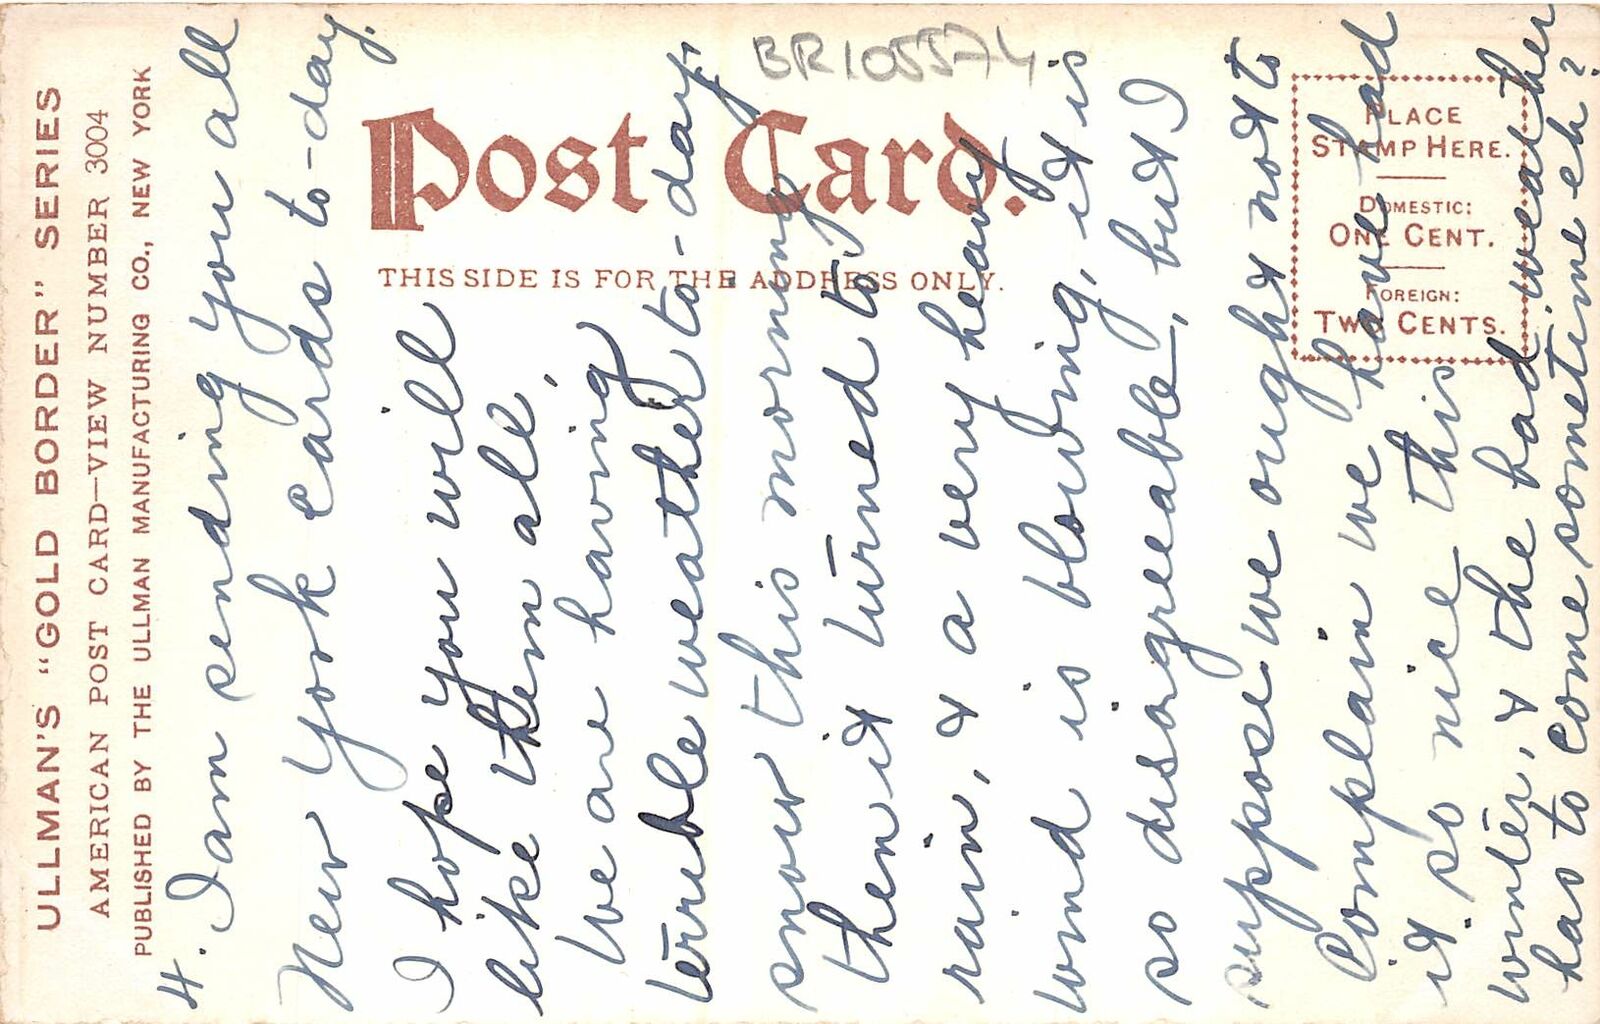 ULLMAN'S "GOLD BORDER" SERIES
AMERICAN POST CARD—VIEW NUMBER 3004
PUBLISHED BY THE ULLMAN MANUFACTURING CO., NEW YORK
BR105574
Post Card.
THIS SIDE IS FOR THE ADDRESS ONLY.
PLACE
STAMP HERE.
DOMESTIC:
ONE CENT.
FOREIGN:
TWO CENTS.
4. I am sending you all
New York cards to-day.
I hope you will
like them all,
We are having
terrible weather to-day,
snow this morning
then it turned to
rain, & a very heavy
wind is blowing, it is
so disagreeable, but I
suppose we ought not to
complain we have had
it so nice this
winter, & the bad weather
has to come sometime eh?